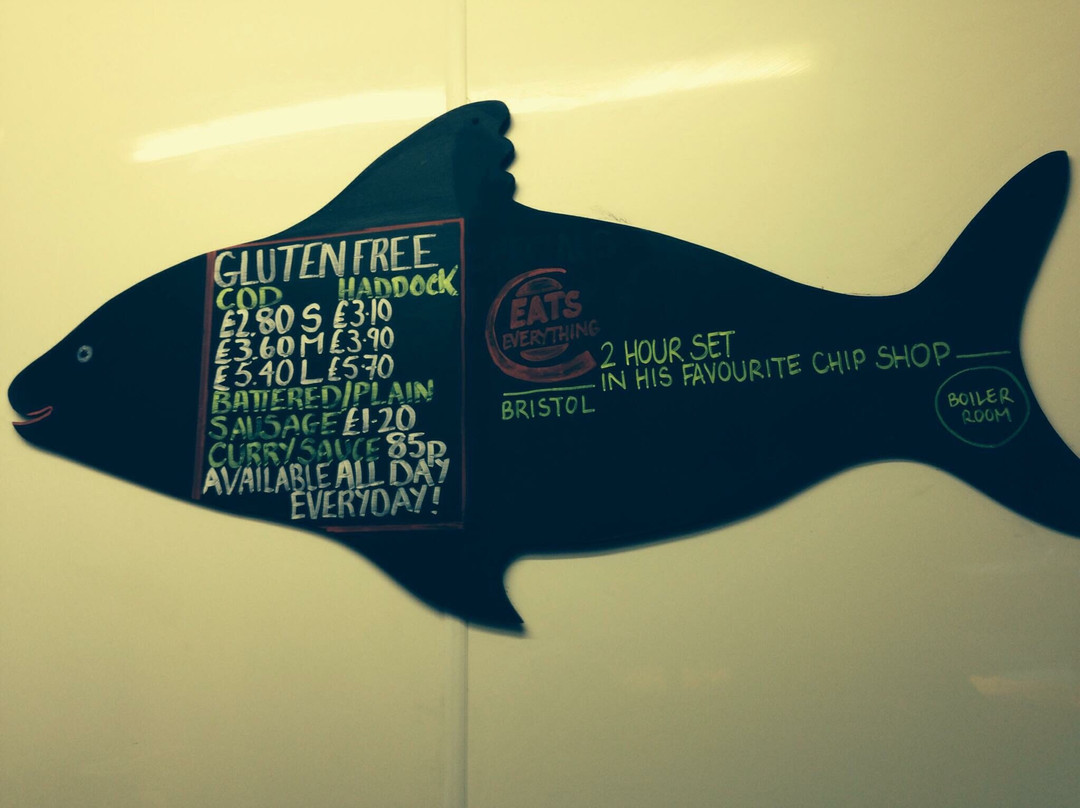 GLUTEN FREE
COD HADDOCK
£2.80 S £3.10
£3.60 M £3.90
£5.40 L £5.70
BATTERED/PLAIN
SAUSAGE £1.20
CURRY SAUCE 85p
AVAILABLE ALL DAY
EVERYDAY!
EATS
EVERYTHING
BRISTOL
2 HOUR SET
IN HIS FAVOURITE CHIP SHOP
BOILER
ROOM